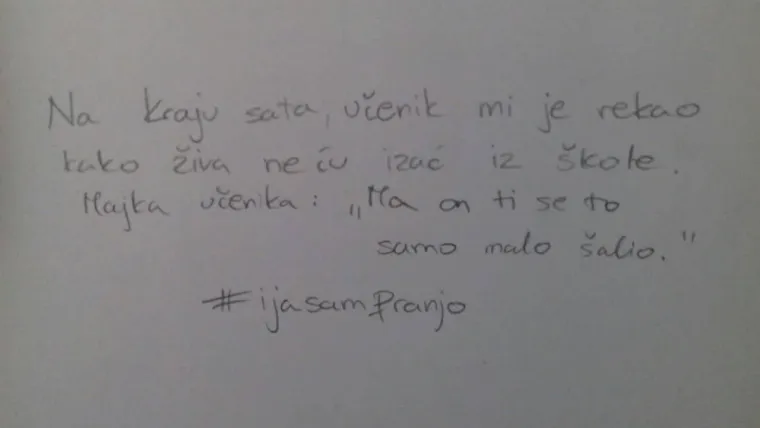 Na kraju sata, učenik mi je rekao
kako živa neću izać iz škole.
Majka učenika: „Ma on ti se to
samo malo šalio."
#ijasamfranjo